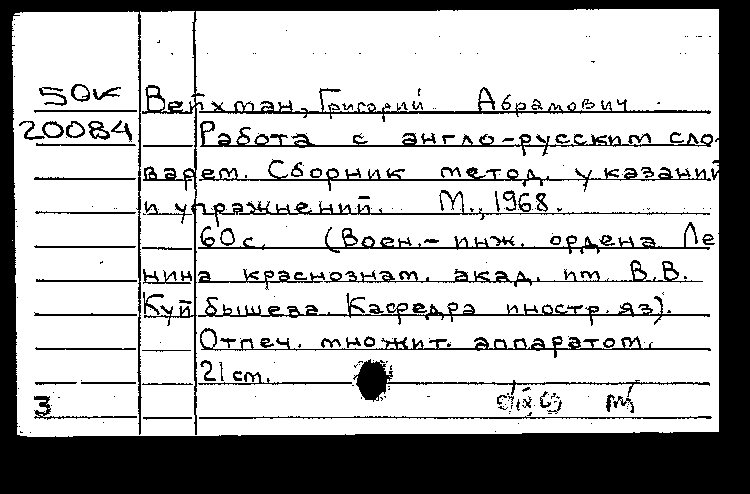 50к Вейхман, Григорий Абрамович.
20084 Работа с англо-русским сло-
варем. Сборник метод. указаний
и упражнений. М., 1968.
60с. (Воен.-инж. ордена Ле
нина краснознам. акад. им. В.В.
Куйбышева. Кафедра иностр. яз).
Отпеч. множит. аппаратом.
21 см.
3